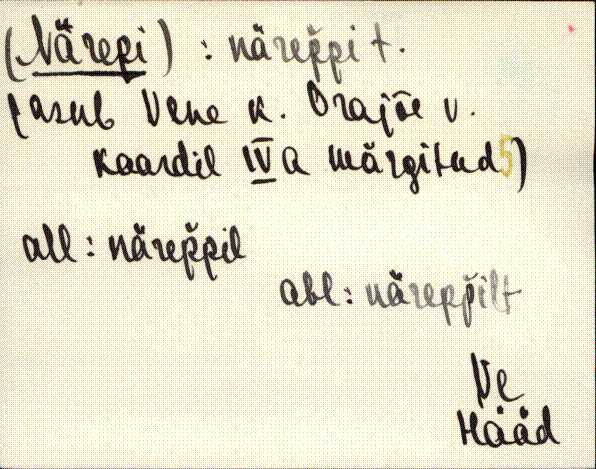 (Närepi) : näreppi t.
(asub Vene k. Orajõe v.
kaardil IV a märgitud 5)
all : näreppil
abl : näreppilt
Ve
Hääd